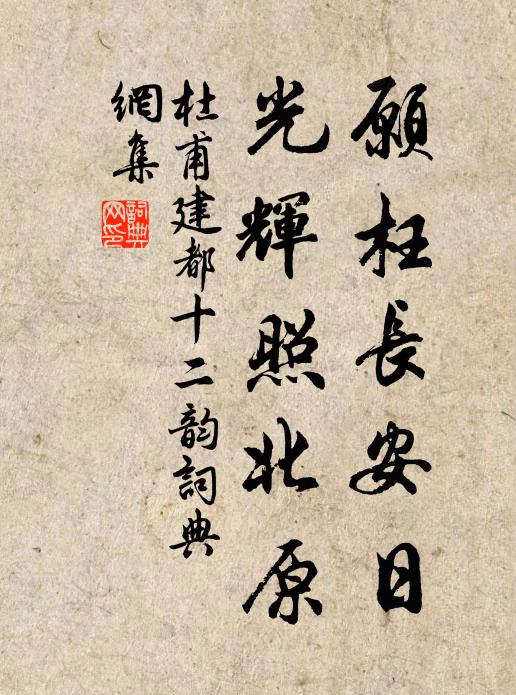 願枉長安日
光輝照北原
杜甫建都十二韵詞典
網集
詞典
网印